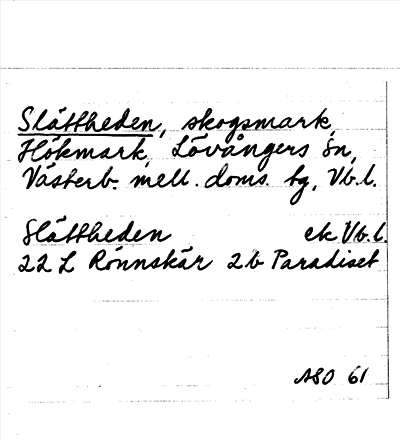 Slåttheden, skogsmark,
Hökmark, Lövångers sn,
Västerb. mell. doms. tg, Vb.l.
Slåttheden ek Vb.l.
22 L Rönnskär 2b Paradiset
ASO 61